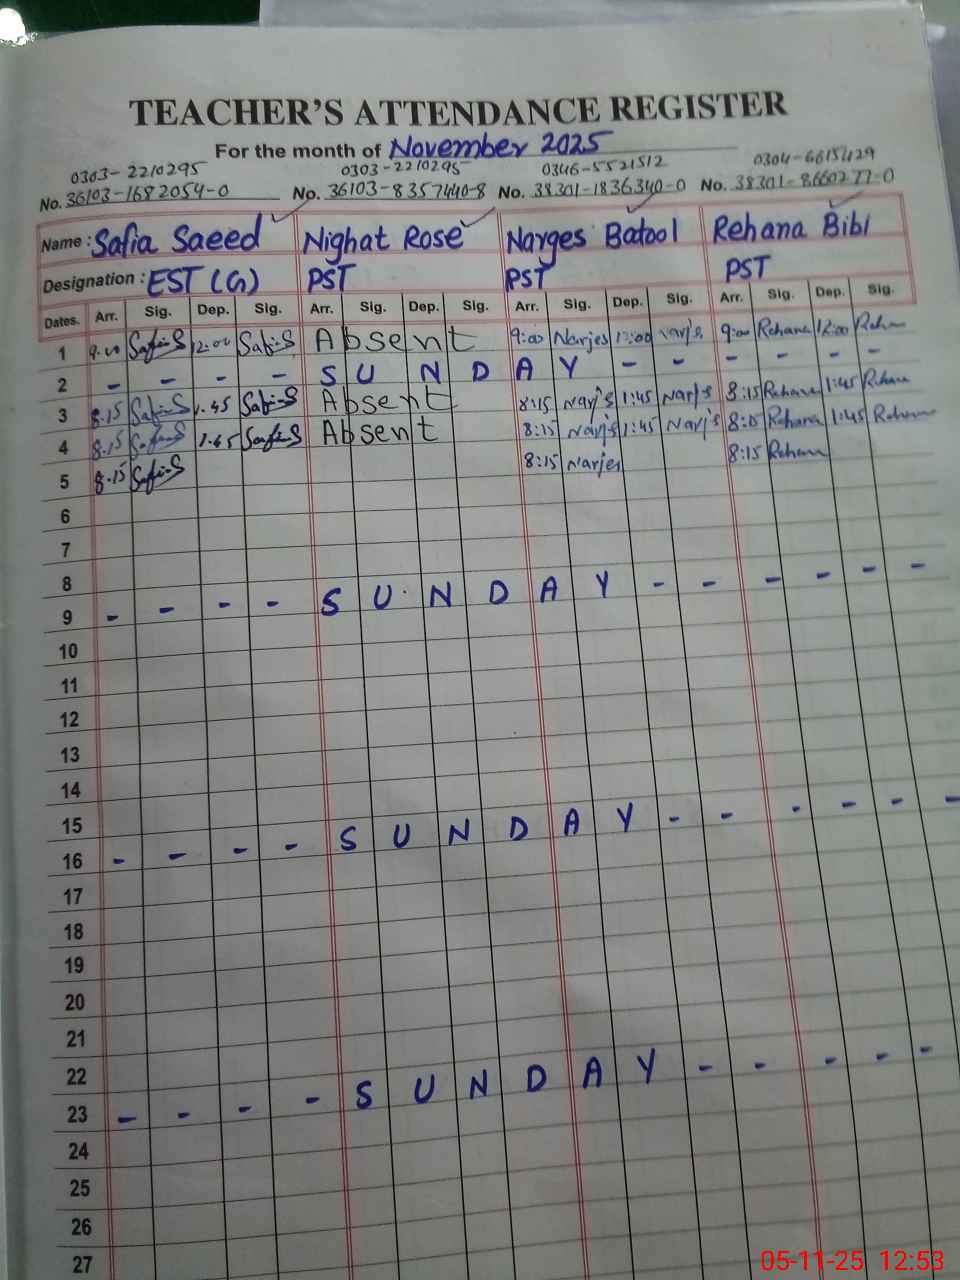 TEACHER'S ATTENDANCE REGISTER
For the month of November 2025
0303-2210295 0303-2210295 0346-5521512 0304-6615429
No. 36103-1682054-0 No. 36103-8357440-8 No. 38301-1836340-0 No. 38301-8660277-0
Name : Safia Saeed Nighat Rose Narges Batool Rehana Bibi
Designation : EST (G) PST PST PST
Dates. Arr. Sig. Dep. Sig. Arr. Sig. Dep. Sig. Arr. Sig. Dep. Sig. Arr. Sig. Dep. Sig.
1 9.00 Safia S 12:00 Safia S Absent 9:00 Narjes 12:00 Narjs 9:00 Rehana 12:00 Rehana
2 - - - - S U N D A Y - - - - - -
3 8.15 Safia S 1.45 Safia S Absent 8:15 Narj's 1:45 Narj's 8:15 Rehana 1:45 Rehana
4 8.15 Safia S 1.45 Safia S Absent 8:15 Narj's 1:45 Narj's 8:15 Rehana 1:45 Rehana
5 8.15 Safia S 8:15 Narjes 8:15 Rehana
6
7
8
9 - - - - S U N D A Y - - - - - -
10
11
12
13
14
15
16 - - - - S U N D A Y - - - - - -
17
18
19
20
21
22
23 - - - - S U N D A Y - - - - -
24
25
26
27
05-11-25 12:53